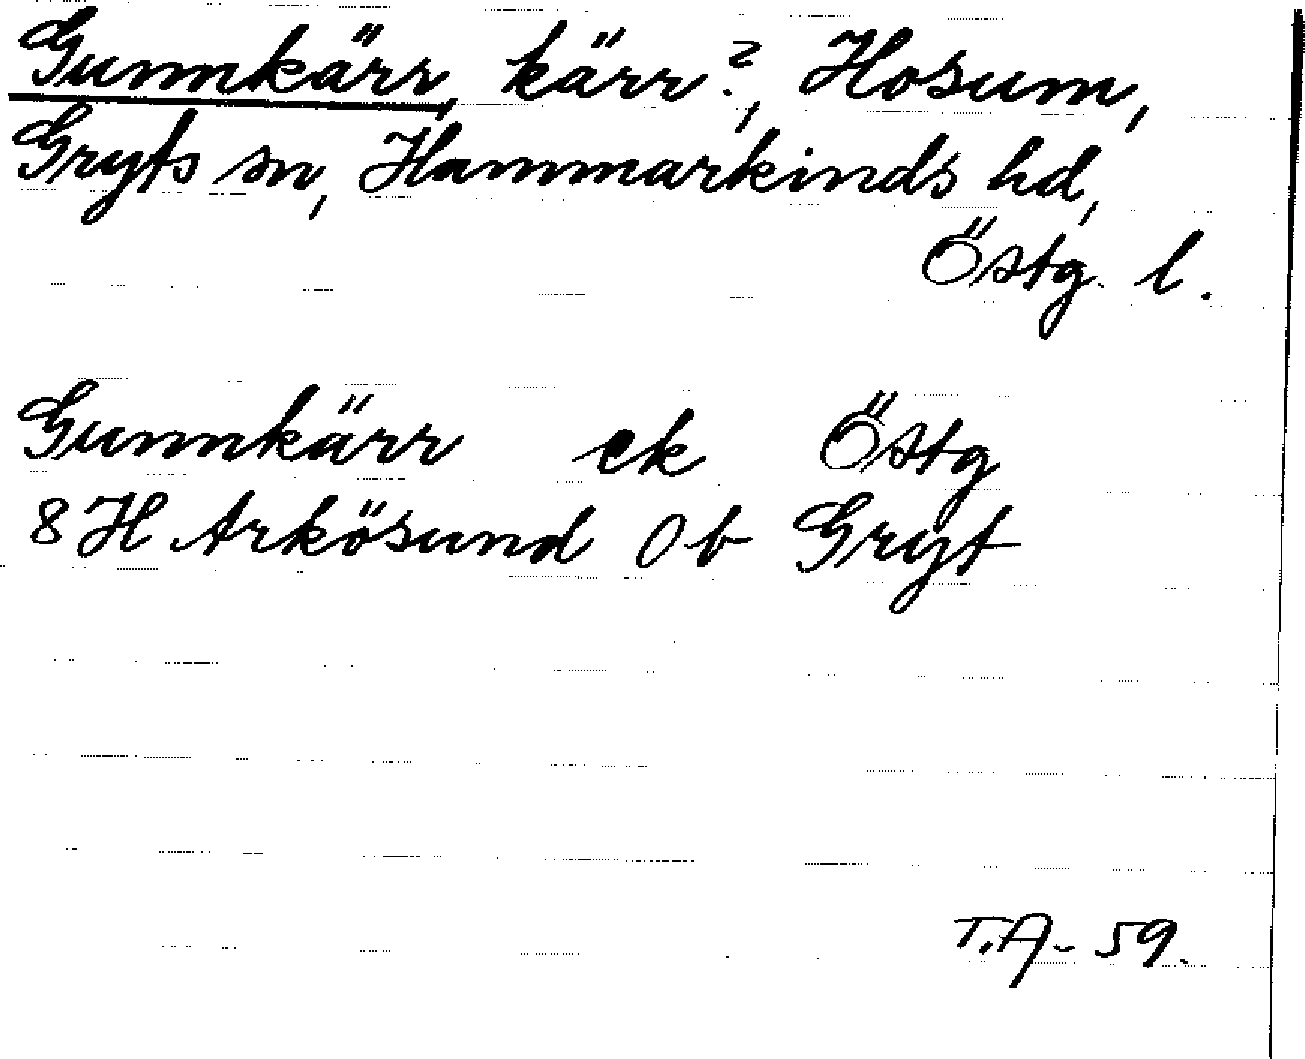 Gunnkärr, kärr?, Hosum,
Gryts sn, Hammarkinds hd,
Östg. l.
Gunnkärr ek Östg
8H Arkösund 0b Gryt
T.A- 59.